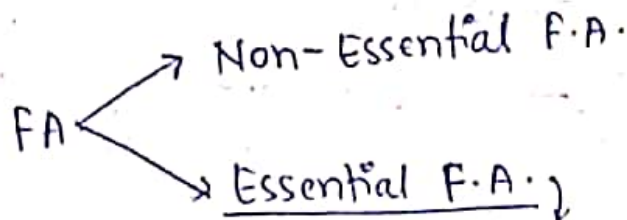 Non-Essential F.A.
FA
Essential F.A.